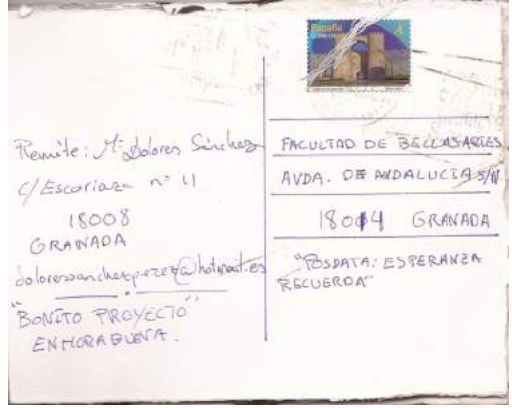 España
A
Remite: Mª Dolores Sánchez
C/Escoriaza nº 11
18008
GRANADA
doloressanchezperez@hotmail.es
"BONITO PROYECTO"
ENHORABUENA.
FACULTAD DE BELLAS ARTES
AVDA. DE ANDALUCIA S/N
18014 GRANADA
"POSDATA: ESPERANZA
RECUERDA"